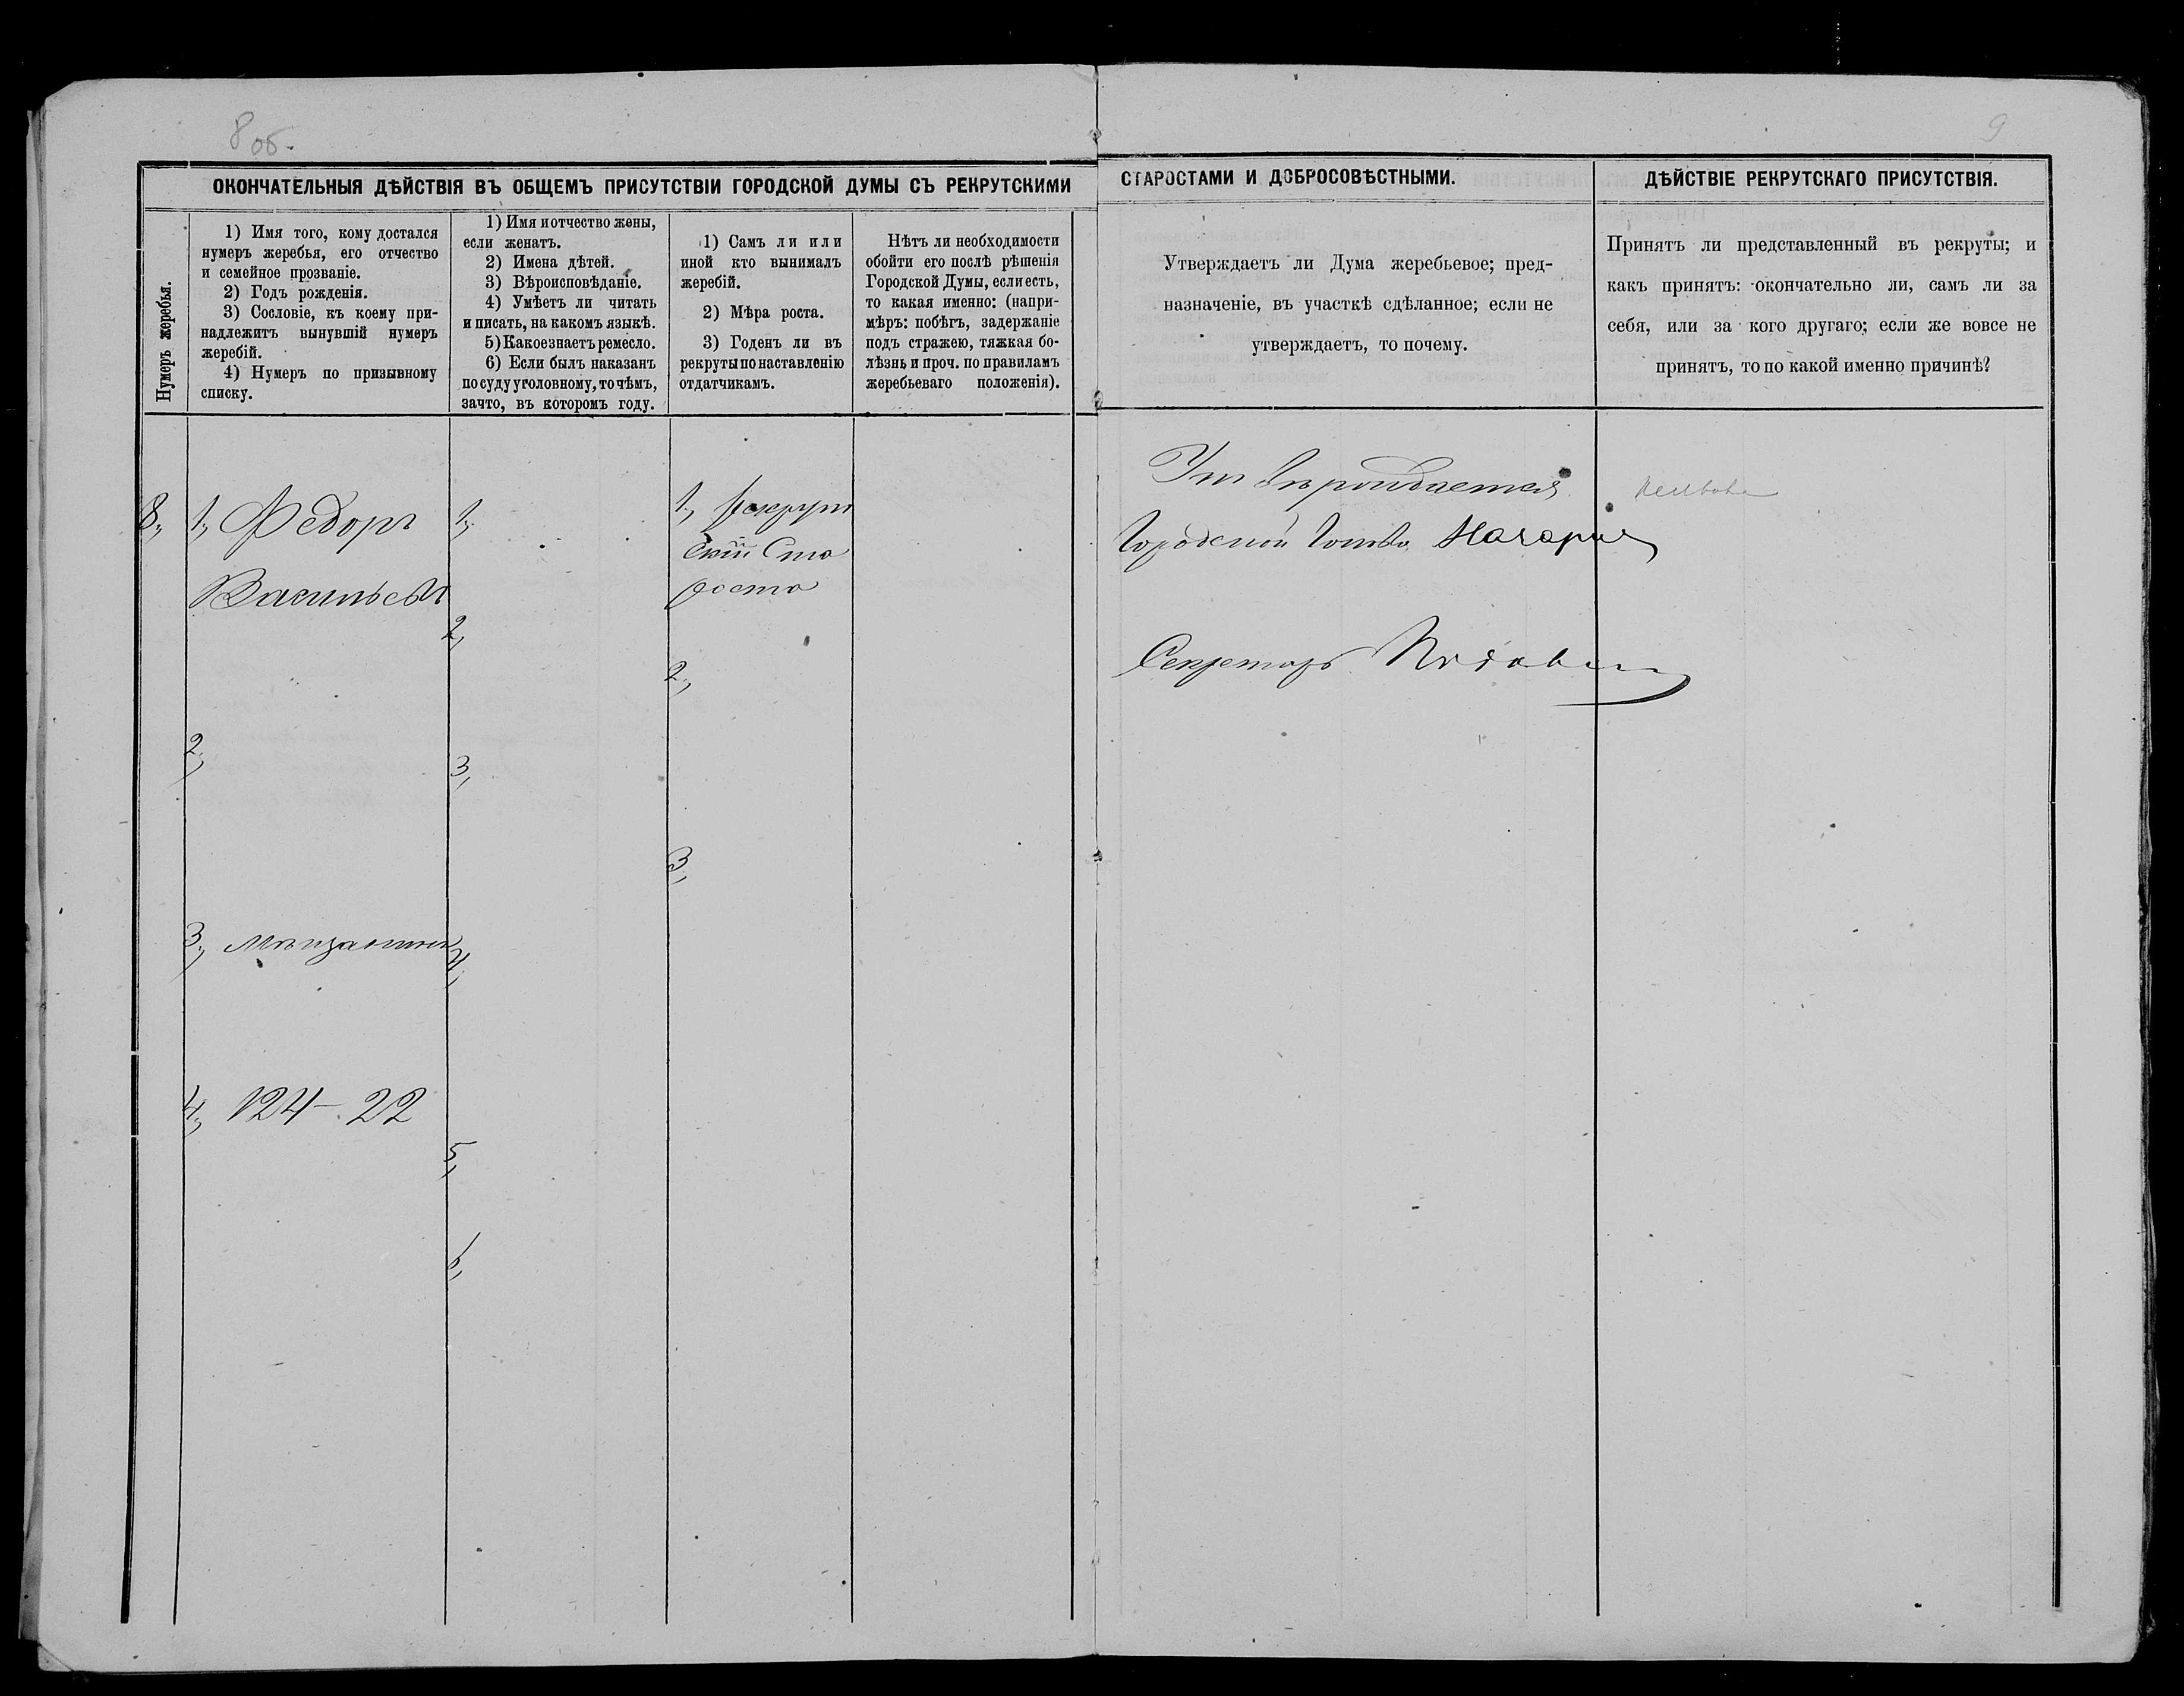 8 об.
9
ОКОНЧАТЕЛЬНЫЯ ДѢЙСТВІЯ ВЪ ОБЩЕМЪ ПРИСУТСТВІИ ГОРОДСКОЙ ДУМЫ СЪ РЕКРУТСКИМИ
СТАРОСТАМИ И ДОБРОСОВѢСТНЫМИ.
ДѢЙСТВІЕ РЕКРУТСКАГО ПРИСУТСТВІЯ.
Нумеръ жеребья.
1) Имя того, кому достался
нумеръ жеребья, его отчество
и семейное прозваніе.
2) Годъ рожденія.
3) Сословіе, къ коему при-
надлежитъ вынувшій нумеръ
жеребій.
4) Нумеръ по призывному
списку.
1) Имя и отчество жены,
если женатъ.
2) Имена дѣтей.
3) Вѣроисповѣданіе.
4) Умѣетъ ли читать
и писать, на какомъ языкѣ.
5) Какое знаетъ ремесло.
6) Если былъ наказанъ
по суду уголовному, то чѣмъ,
за что, въ которомъ году.
1) Самъ ли или
иной кто вынималъ
жеребій.
2) Мѣра роста.
3) Годенъ ли въ
рекруты по наставленію
отдатчикамъ.
Нѣтъ ли необходимости
обойти его послѣ рѣшенія
Городской Думы, если есть,
то какая именно: (напри-
мѣръ: побѣгъ, задержаніе
подъ стражею, тяжкая бо-
лѣзнь и проч. по правиламъ
жеребьеваго положенія).
Утверждаетъ ли Дума жеребьевое; пред-
назначеніе, въ участкѣ сдѣланное; если не
утверждаетъ, то почему.
Принятъ ли представленный въ рекруты; и
какъ принятъ: окончательно ли, самъ ли за
себя, или за кого другаго; если же вовсе не
принятъ, то по какой именно причинѣ?
8,
1, Федоръ
Васильевъ
2,
3, мѣщанинъ
4, 124 – 22
1,
2,
3,
4,
5,
6,
1, Рекрут
скій Ста
роста
2,
3,
Утверждается
Городской Голова
Секретарь